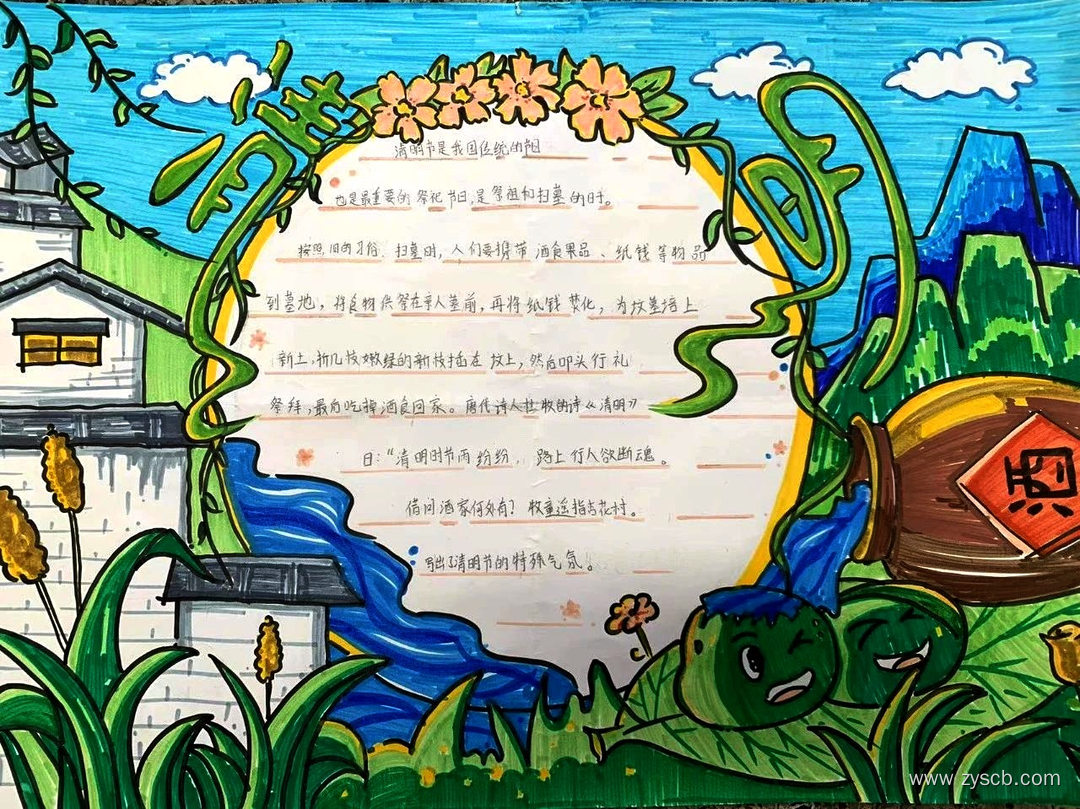 清明
清明节是我国传统的节日
也是最重要的祭祀节日,是祭祖和扫墓的日时。
按照旧的习俗、扫墓时,人们要携带酒食果品、纸钱等物品
到墓地,将食物供祭在亲人墓前,再将纸钱焚化,为坟墓培上
新土,折几枝嫩绿的新枝插在坟上,然后叩头行礼
祭拜,最后吃掉酒食回家。唐代诗人杜牧的诗《清明》
曰:“清明时节雨纷纷,路上行人欲断魂。
借问酒家何处有?牧童遥指杏花村。
写出了清明节的特殊气氛!
酒
www.zyscb.com